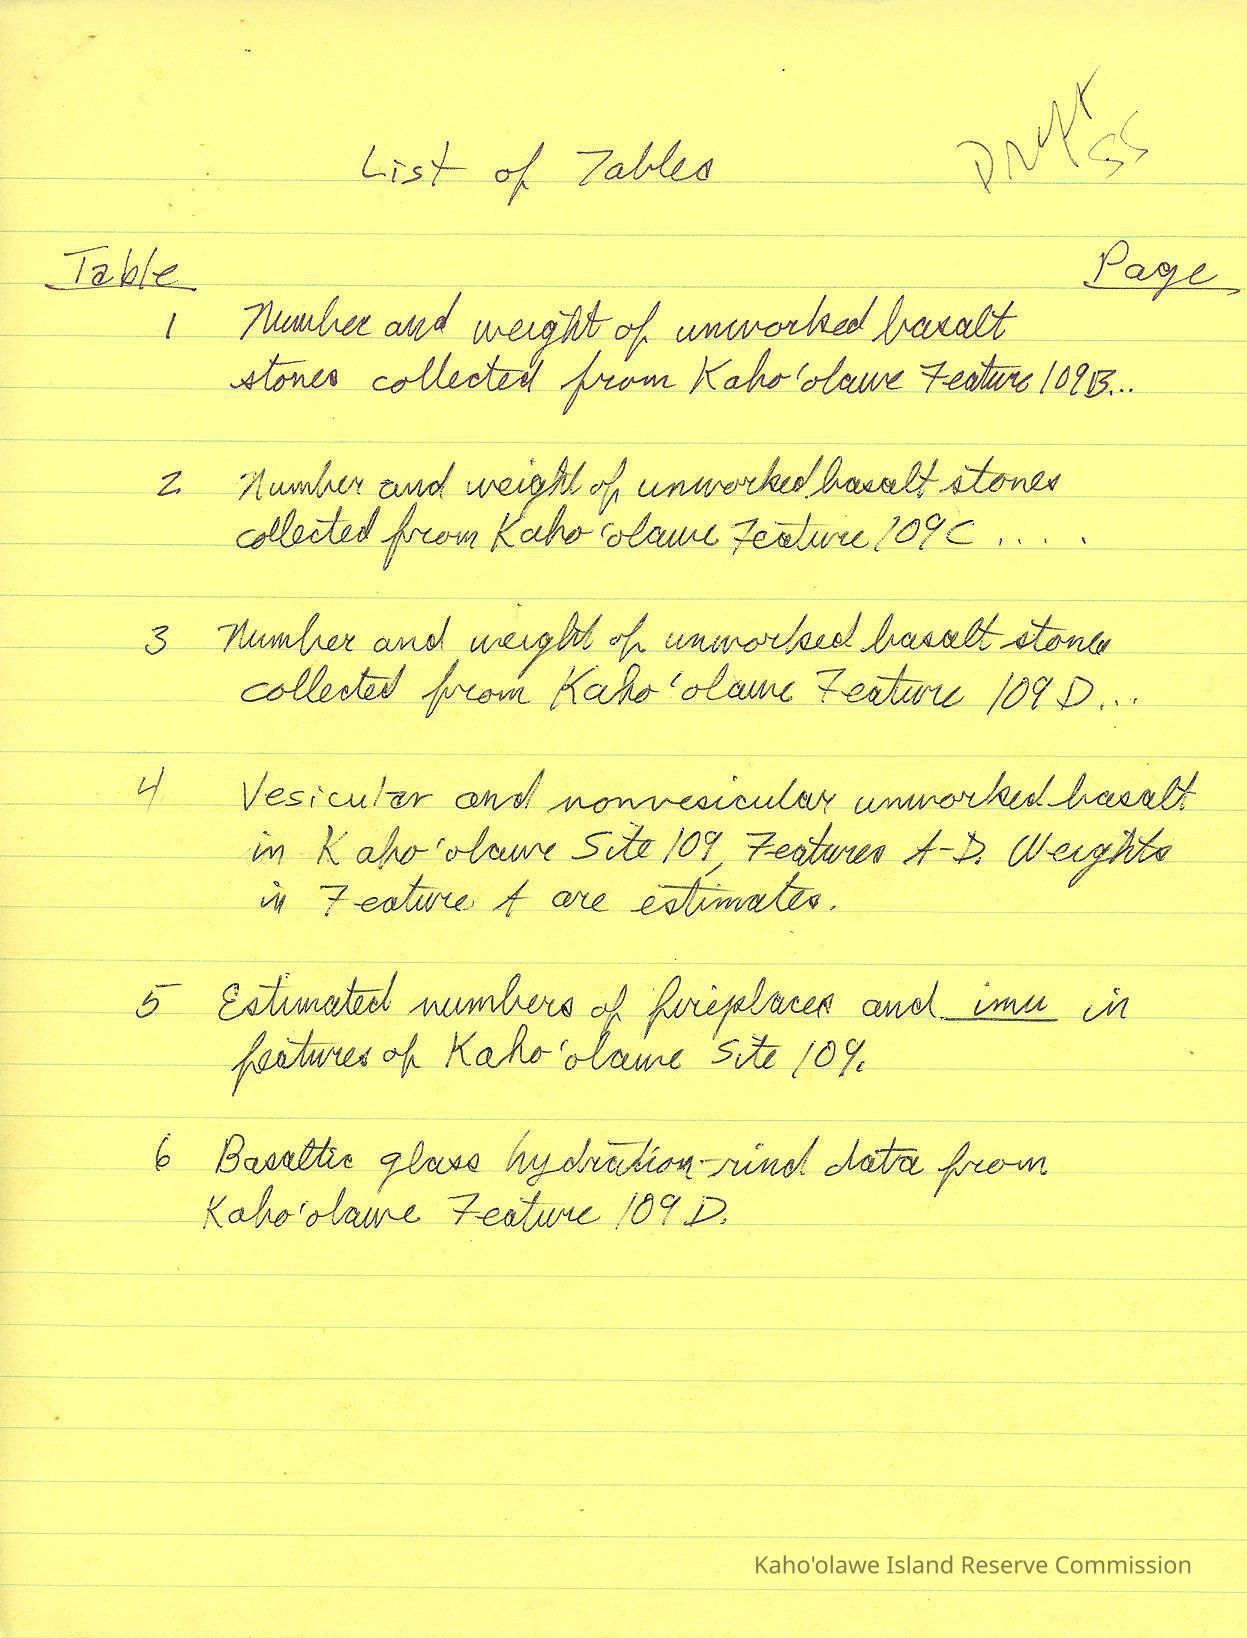 Draft
SS
List of Tables
Table Page
1 Number and weight of unworked basalt
stones collected from Kaho'olawe Feature 109B...
2 Number and weight of unworked basalt stones
collected from Kaho'olawe Feature 109C ....
3 Number and weight of unworked basalt stones
collected from Kaho'olawe Feature 109 D...
4 Vesicular and nonvesicular unworked basalt
in Kaho'olawe Site 109, Features A-D. Weights
in Feature A are estimates.
5 Estimated numbers of fireplaces and imu in
features of Kaho'olawe Site 109.
6 Basaltic glass hydration-rind data from
Kaho'olawe Feature 109 D.
Kaho'olawe Island Reserve Commission